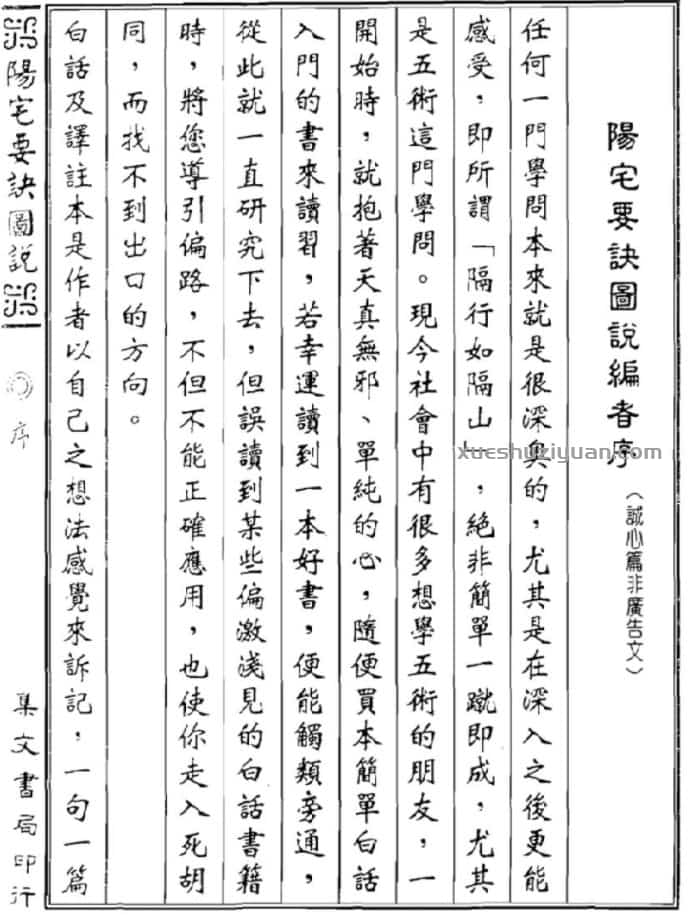 陽宅要訣圖說編者序（誠心篇非廣告文）
任何一門學問本來就是很深奧的，尤其是在深入之後更能
感受，即所謂「隔行如隔山」，絕非簡單一蹴即成，尤其
是五術這門學問。現今社會中有很多想學五術的朋友，一
開始時，就抱著天真無邪、單純的心，隨便買本簡單白話
入門的書來讀習，若幸運讀到一本好書，便能觸類旁通，
從此就一直研究下去，但誤讀到某些偏激淺見的白話書籍
時，將您導引偏路，不但不能正確應用，也使你走入死胡
同，而找不到出口的方向。
白話及譯註本是作者以自己之想法感覺來訴記，一句一篇
陽宅要訣圖說
序
集文書局印行
xueshuziyuan.com